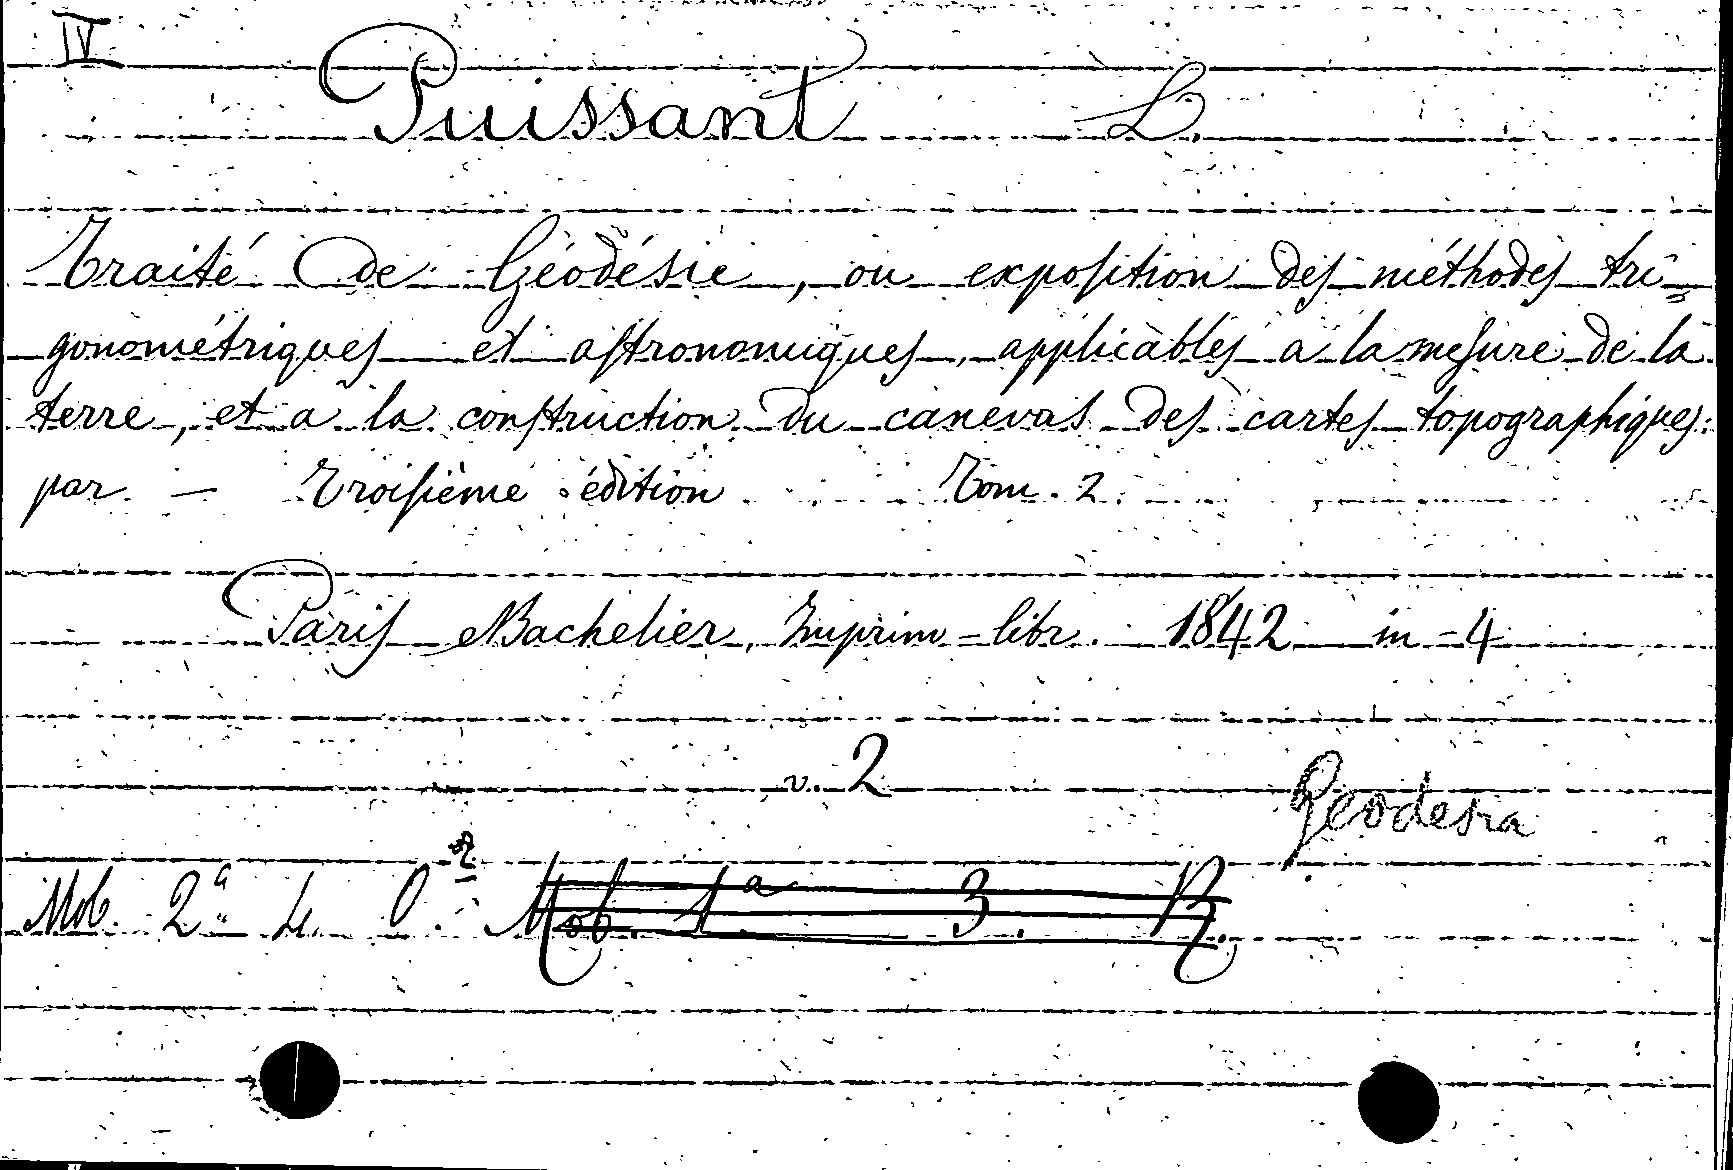 IV
Puissant L.
Traité de Géodésie, ou exposition des méthodes tri=
gonométriques et astronomiques, applicables a la mesure de la
terre, et a la construction du canevas des cartes topographiques:
par — Troisième édition. Tom. 2.
Paris Bachelier, Imprim=libr. 1842 in-4
v. 2
Geodesia
Mob. 2a 4. O. Mob. 1a 3. R.